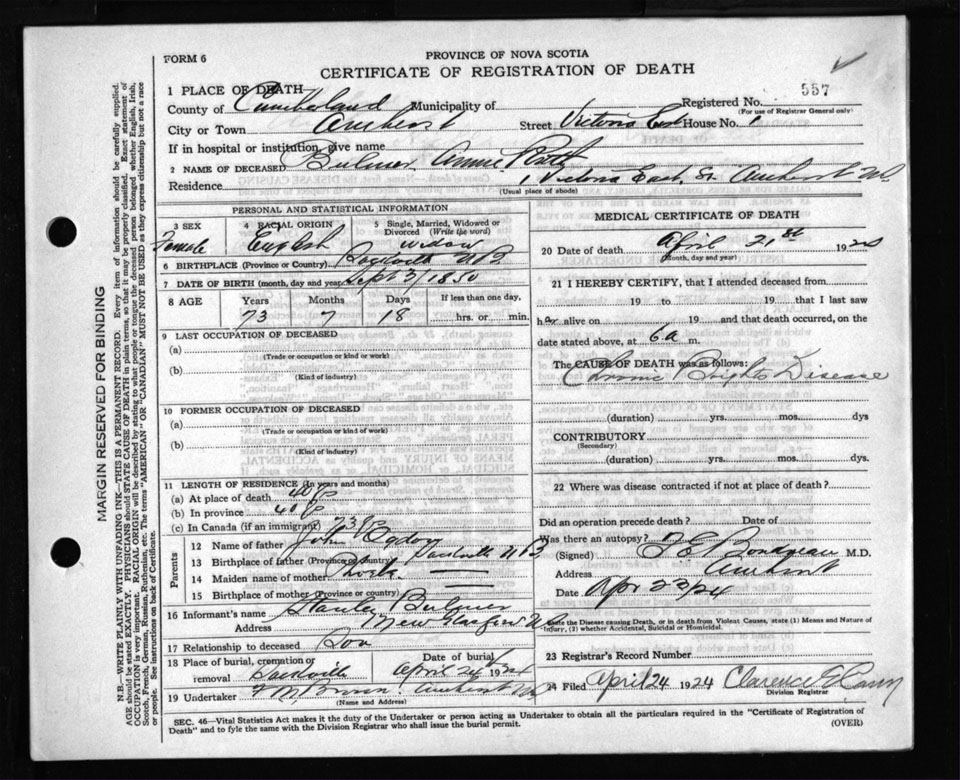 PROVINCE OF NOVA SCOTIA
FORM 6
CERTIFICATE OF REGISTRATION OF DEATH
557
1 PLACE OF DEATH
County of Cumberland Municipality of Registered No.
(For use of Registrar General only)
City or Town Amherst Street Victoria East House No. 1
If in hospital or institution, give name
2 NAME OF DECEASED Bulmer Annie
Residence 1 Victoria East St. Amherst NS
(Usual place of abode)
PERSONAL AND STATISTICAL INFORMATION
3 SEX 4 RACIAL ORIGIN 5 Single, Married, Widowed or Divorced (Write the word)
Female English widow
6 BIRTHPLACE (Province or Country) NB
7 DATE OF BIRTH (month, day and year) Sept 3/1850
8 AGE Years Months Days If less than one day,
73 7 18 hrs. or min.
9 LAST OCCUPATION OF DECEASED
(a)
(Trade or occupation or kind or work)
(b)
(Kind of industry)
10 FORMER OCCUPATION OF DECEASED
(a)
(Trade or occupation or kind or work)
(b)
(Kind of industry)
11 LENGTH OF RESIDENCE (In years and months)
(a) At place of death 40
(b) In province 40
(c) In Canada (if an immigrant) 73
Parents
12 Name of father John Ogden
13 Birthplace of father (Province or Country) Sackville NB
14 Maiden name of mother
15 Birthplace of mother (Province or country)
16 Informant's name Stanley Bulmer
Address New Glasgow NS
17 Relationship to deceased Son
18 Place of burial, cremation or removal Sackville Date of burial April 24 1924
19 Undertaker Amherst NS
(Name and Address)
MEDICAL CERTIFICATE OF DEATH
20 Date of death April 21st 1924
(Month, day and year)
21 I HEREBY CERTIFY, that I attended deceased from
19 to 19 that I last saw
her alive on 19 and that death occurred, on the
date stated above, at 6 a m.
The CAUSE OF DEATH was as follows:
Chronic Brights Disease
(duration) yrs. mos. dys
CONTRIBUTORY
(Secondary)
(duration) yrs. mos. dys.
22 Where was disease contracted if not at place of death?
Did an operation precede death? Date of
Was there an autopsy?
(Signed) M.D.
Address Amherst
Date Apr 23/24
State the Disease causing Death, or in death from Violent Causes, state (1) Means and Nature of Injury, (2) whether Accidental, Suicidal or Homicidal.
23 Registrar's Record Number
24 Filed April 24 1924 Clarence
Division Registrar
SEC. 46—Vital Statistics Act makes it the duty of the Undertaker or person acting as Undertaker to obtain all the particulars required in the "Certificate of Registration of
Death" and to fyle the same with the Division Registrar who shall issue the burial permit.
(OVER)
MARGIN RESERVED FOR BINDING
N.B.—WRITE PLAINLY WITH UNFADING INK—THIS IS A PERMANENT RECORD. Every item of information should be carefully supplied.
AGE should be stated EXACTLY. PHYSICIANS should STATE CAUSE OF DEATH in plain terms, so that it may be properly classified. Exact statement of
OCCUPATION is very important. RACIAL ORIGIN will be described by stating to what people or tongue the deceased person belonged whether English, Irish,
Scotch, French, German, Russian, Ruthenian, etc. The terms "AMERICAN" OR "CANADIAN" MUST NOT BE USED as they express citizenship but not a race
or people. See instructions on back of Certificate.